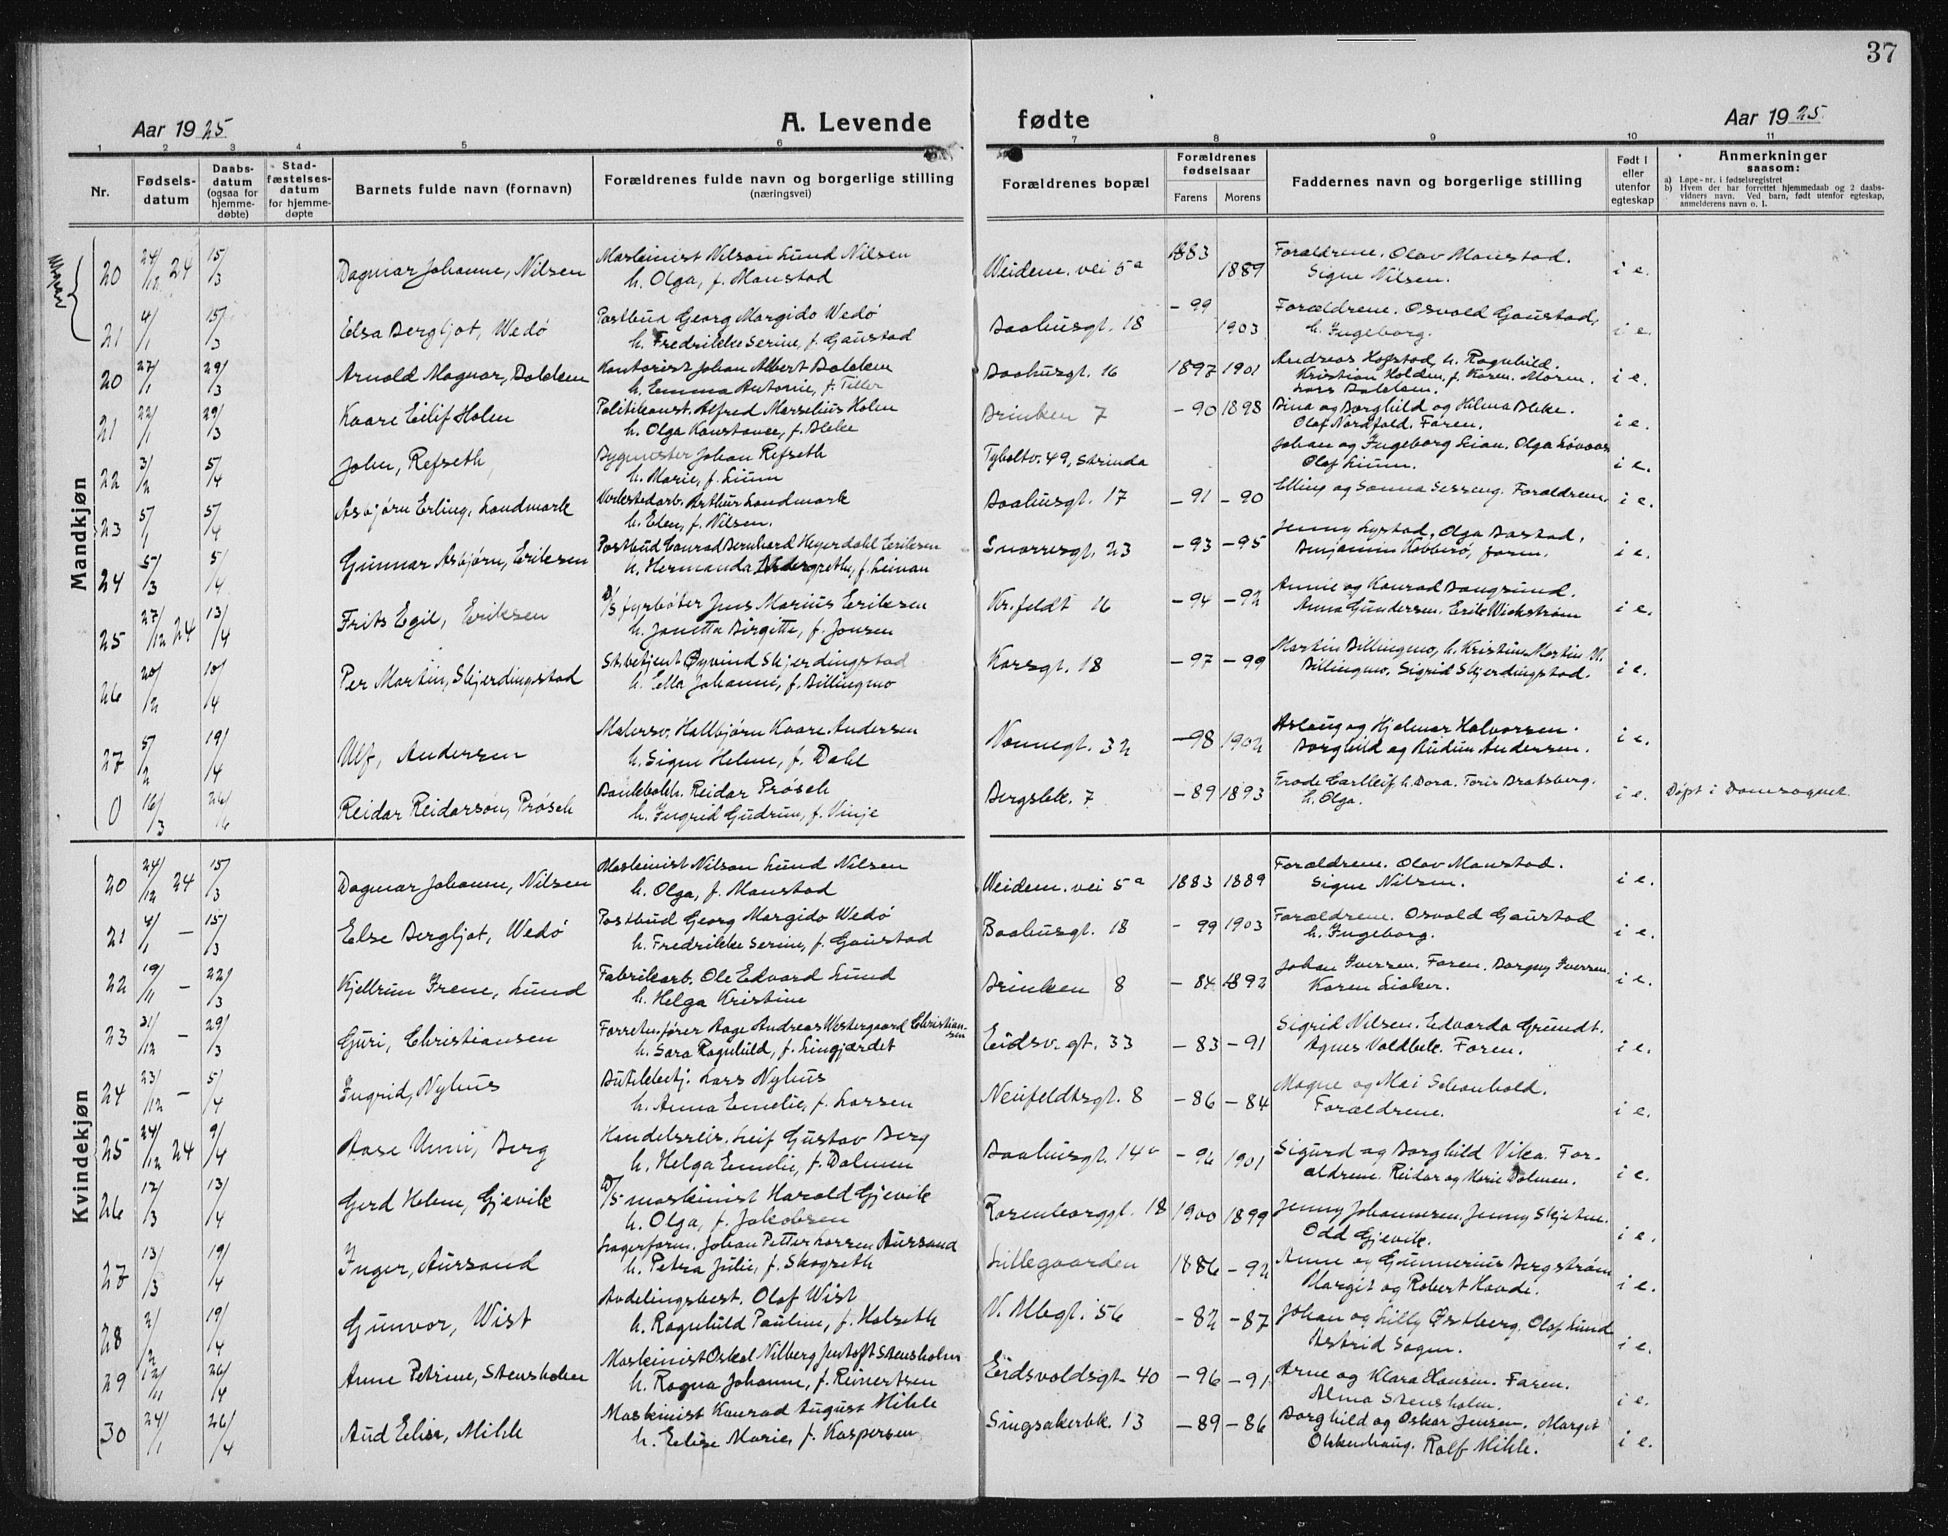 37
Aar 1925
A. Levende fødte
Aar 1925.
1 2 3 4 5 6 7 8 9 10 11
Nr.
Fødsels-
datum
Daabs-
datum
(ogsaa for
hjemme-
døbte)
Stad-
fæstelses-
datum
for hjemme-
døpte
Barnets fulde navn (fornavn)
Forældrenes fulde navn og borgerlige stilling
(næringsvei)
Forældrenes bopæl
Forældrenes
fødselsaar
Farens Morens
Faddernes navn og borgerlige stilling
Født i
eller
utenfor
egteskap
Anmerkninger
saasom:
a) Løpe-nr. i fødselsregistret
b) Hvem der har forrettet hjemmedaab og 2 daabs-
vidners navn. Ved barn, født utenfor egteskap,
anmelderens navn o. l.
Mandkjøn
20 24/12 24 15/3 Dagmar Johanne, Nilsen Maskinist Nilson Lund Nilsen Weidem. vei 5a 1883 1889 Forældrene. Olav Monstad. i e.
h. Olga, f. Monstad Signe Nilsen.
21 4/1 15/3 Elsa Bergljot, Wedø Postbud Georg Margido Wedø Baahusgt. 18 -99 1903 Forældrene. Osvald Gaustad, i e.
h. Fredrikke Serine, f. Gaustad h. Ingeborg.
20 27/1 29/3 Arnold Magnar, Dolden Kontorist Johan Albert Dolden Baahusgt. 16 1897 1901 Andreas Hofstad, h. Ragnhild. i e.
h. Emma Antonie, f. Tiller Kristian Holden, f. Karen. Moren.
21 22/1 29/3 Kaare Eilif Holen Politikonst. Alfred Marselius Holen Brinken 7 -90 1898 Dina og Borghild og Helma Bleke. i e.
h. Olga Konstance, f. Bleke Olaf Nordfold. Faren.
22 3/2 5/4 John, Refseth Bygmester Johan Refseth Tyholtv. 49, Strinda Johan og Ingeborg Lian. Olga Løvaas i e.
h. Marie, f. Lium Olaf Lium.
23 5/1 5/4 Asbjørn Erling, Landmark Verkstedarb. Arthur Landmark Baahusgt. 17 -91 -90 Elling og Sanna Sesseng. Forældrene. i e.
h. Elen, f. Nilsen.
24 5/3 5/4 Gunnar Asbjørn, Eriksen Postbud Conrad Bernhard Heyerdahl Eriksen Snorresgt. 23 -93 -95 Jenny Lystad, Olga Barstad, i e.
h. Hermanda f. Leinan Benjamin Kobberø, faren.
25 27/12 24 13/4 Frits Egil, Eriksen D/S fyrbøter Jens Marius Eriksen Kr.feldt 16 -94 -92 Annie og Konrad Baugrund. i e.
h. Janetta Birgitte, f. Jensen Anna Gundersen. Erik Wickstrøm
26 20/2 10/4 Per Martin, Skjerdingstad St.betjent Øyvind Skjerdingstad Korsgt. 18 -97 -99 Martin Billingmo, h. Kristine Martin M. i e.
h. Ella Johanne, f. Billingmo Billingmo, Sigrid Skjerdingstad.
27 5/2 19/4 Ulf, Andersen Malersv. Hallbjørn Kaare Andersen Nonnegt. 32 -98 1902 Aslaug og Hjalmar Halvorsen. i e.
h. Signe Helene, f. Dahl Borghild og Audun Andersen.
0 16/3 26/6 Reidar Reidarsøn, Prøsch Bankbokh. Reidar Prøsch Bergsbk. 7 -89 1893 Frode Carlleif h. Dora. Toris Bratsberg. i e. Døpt i Domsognet.
h. Ingrid Gudrun, f. Vinje h. Olga.
Kvindekjøn
20 24/12 24 15/3 Dagmar Johanne, Nilsen Maskinist Nilson Lund Nilsen Weidem. vei 5a 1883 1889 Forældrene. Olav Monstad. i e.
h. Olga, f. Monstad Signe Nilsen.
21 4/1 - 15/3 Else Bergljot, Wedø Postbud Georg Margido Wedø Baahusgt. 18 -99 1903 Forældrene. Osvald Gaustad i e.
h. Fredrikke Serine, f. Gaustad h. Ingeborg.
22 19/11 - 22/3 Kjellrun Irene, Lund Fabrikarb. Ole Edvard Lund Brinken 8 -84 1892 Johan Iversen. Faren. Borgny Iversen. i e.
h. Helga Kristine Karen Liaker.
23 31/12 - 29/3 Guri, Christiansen Forretn.fører Aage Andreas Westergaard Christian- Eidsv. gt. 33 -83 -91 Sigrid Nilsen. Edvarda Grundt. i e.
sen
h. Sara Ragnhild, f. Lingjærdet Agnes Voldbek. Faren.
24 23/12 - 5/4 Ingrid, Nyhus Butikkbetj. Lars Nyhus Neufeldtsgt. 8 -86 -84 Magne og Mai Schanhold. i e.
h. Anna Emelie, f. Larsen Forældrene.
25 24/12 24 9/4 Aase Unni, Berg Handelsreis. Leif Gustav Berg Baahusgt. 14b -96 1901 Sigurd og Borghild Vika. For- i e.
h. Helga Emelie, f. Dolmen ældrene. Reidar og Marie Dolmen.
26 12/3 13/4 Gerd Helene, Gjevik D/S maskinist Harald Gjevik Rosenborggt. 18 1900 1899 Jenny Johannesen. Jenny Skjetne. i e.
h. Olga, f. Jakobsen Odd Gjevik.
27 13/3 19/4 Inger, Aursand Lagerform. Johan Petter Larsen Aursand Lillegaarden 1886 -92 Anne og Gunnerius Bergstrøm i e.
h. Petra Julie, f. Skogseth Margit og Robert Havde.
28 2/2 19/4 Gunvor, Wist Avdelingsbest. Olaf Wist V. Allegt. 56 -82 -87 Johan og Lilly Østberg. Olaf Lund i e.
h. Ragnhild Pauline, f. Halseth Astrid Sagen.
29 12/11 26/4 Anne Petrine, Stensholm Maskinist Oskal Nilberg Jentoft Stensholm Eidsvoldsgt. 40 -96 -91 Arne og Klara Hansen. Faren. i e.
h. Ragna Johanne, f. Reinertsen Alma Stensholm.
30 24/1 26/4 Aud Elise, Mikle Maskinist Konrad August Mikle Singsakerbk. 13 -89 -86 Borghild og Oskar Jensen. Margit i e.
h. Elise Marie, f. Kaspersen Rolf Mikle.